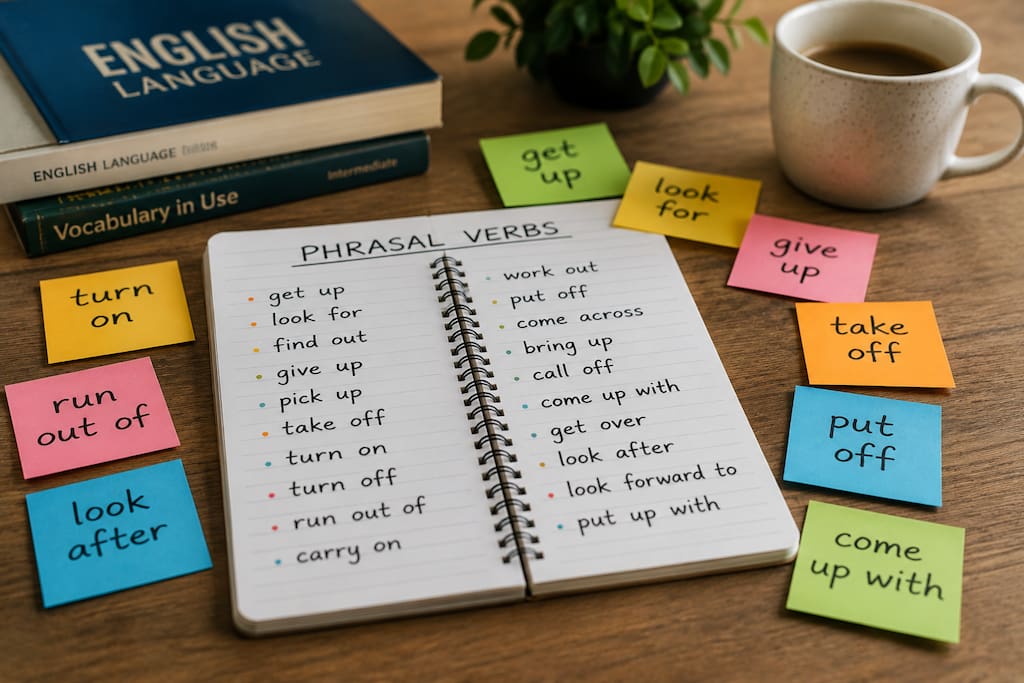 ENGLISH
LANGUAGE
ENGLISH LANGUAGE
Vocabulary in Use
Intermediate
get
up
look
for
give
up
turn
on
run
out of
look
after
PHRASAL VERBS
get up
look for
find out
give up
pick up
take off
turn on
turn off
run out of
carry on
work out
put off
come across
bring up
call off
come up with
get over
look after
look forward to
put up with
take
off
put
off
come
up with